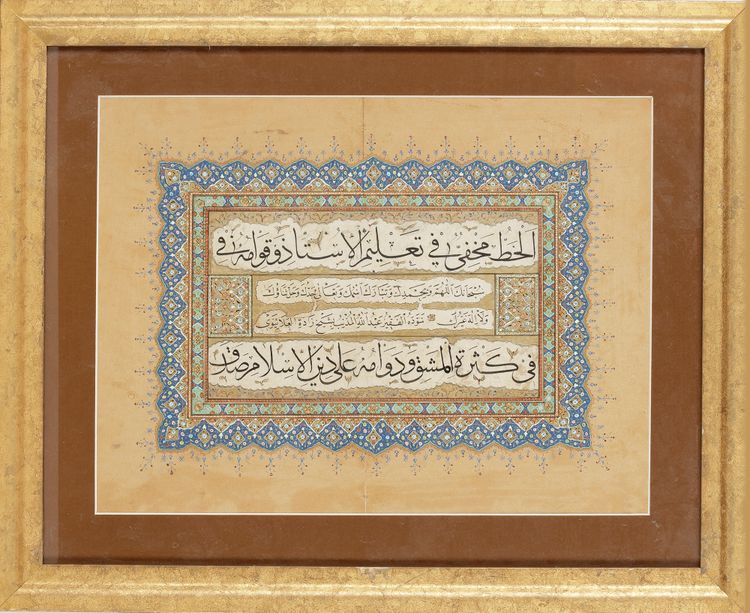 الخط مخفي في تعليم الأستاذ وقوامه في
سبحانك اللهم وبحمدك وتبارك اسمك وتعالى جدك وجل ثناؤك
ولا إله غيرك سوّده الفقير عبد الله
في كثرة المشق ودوامه على دين الإسلام